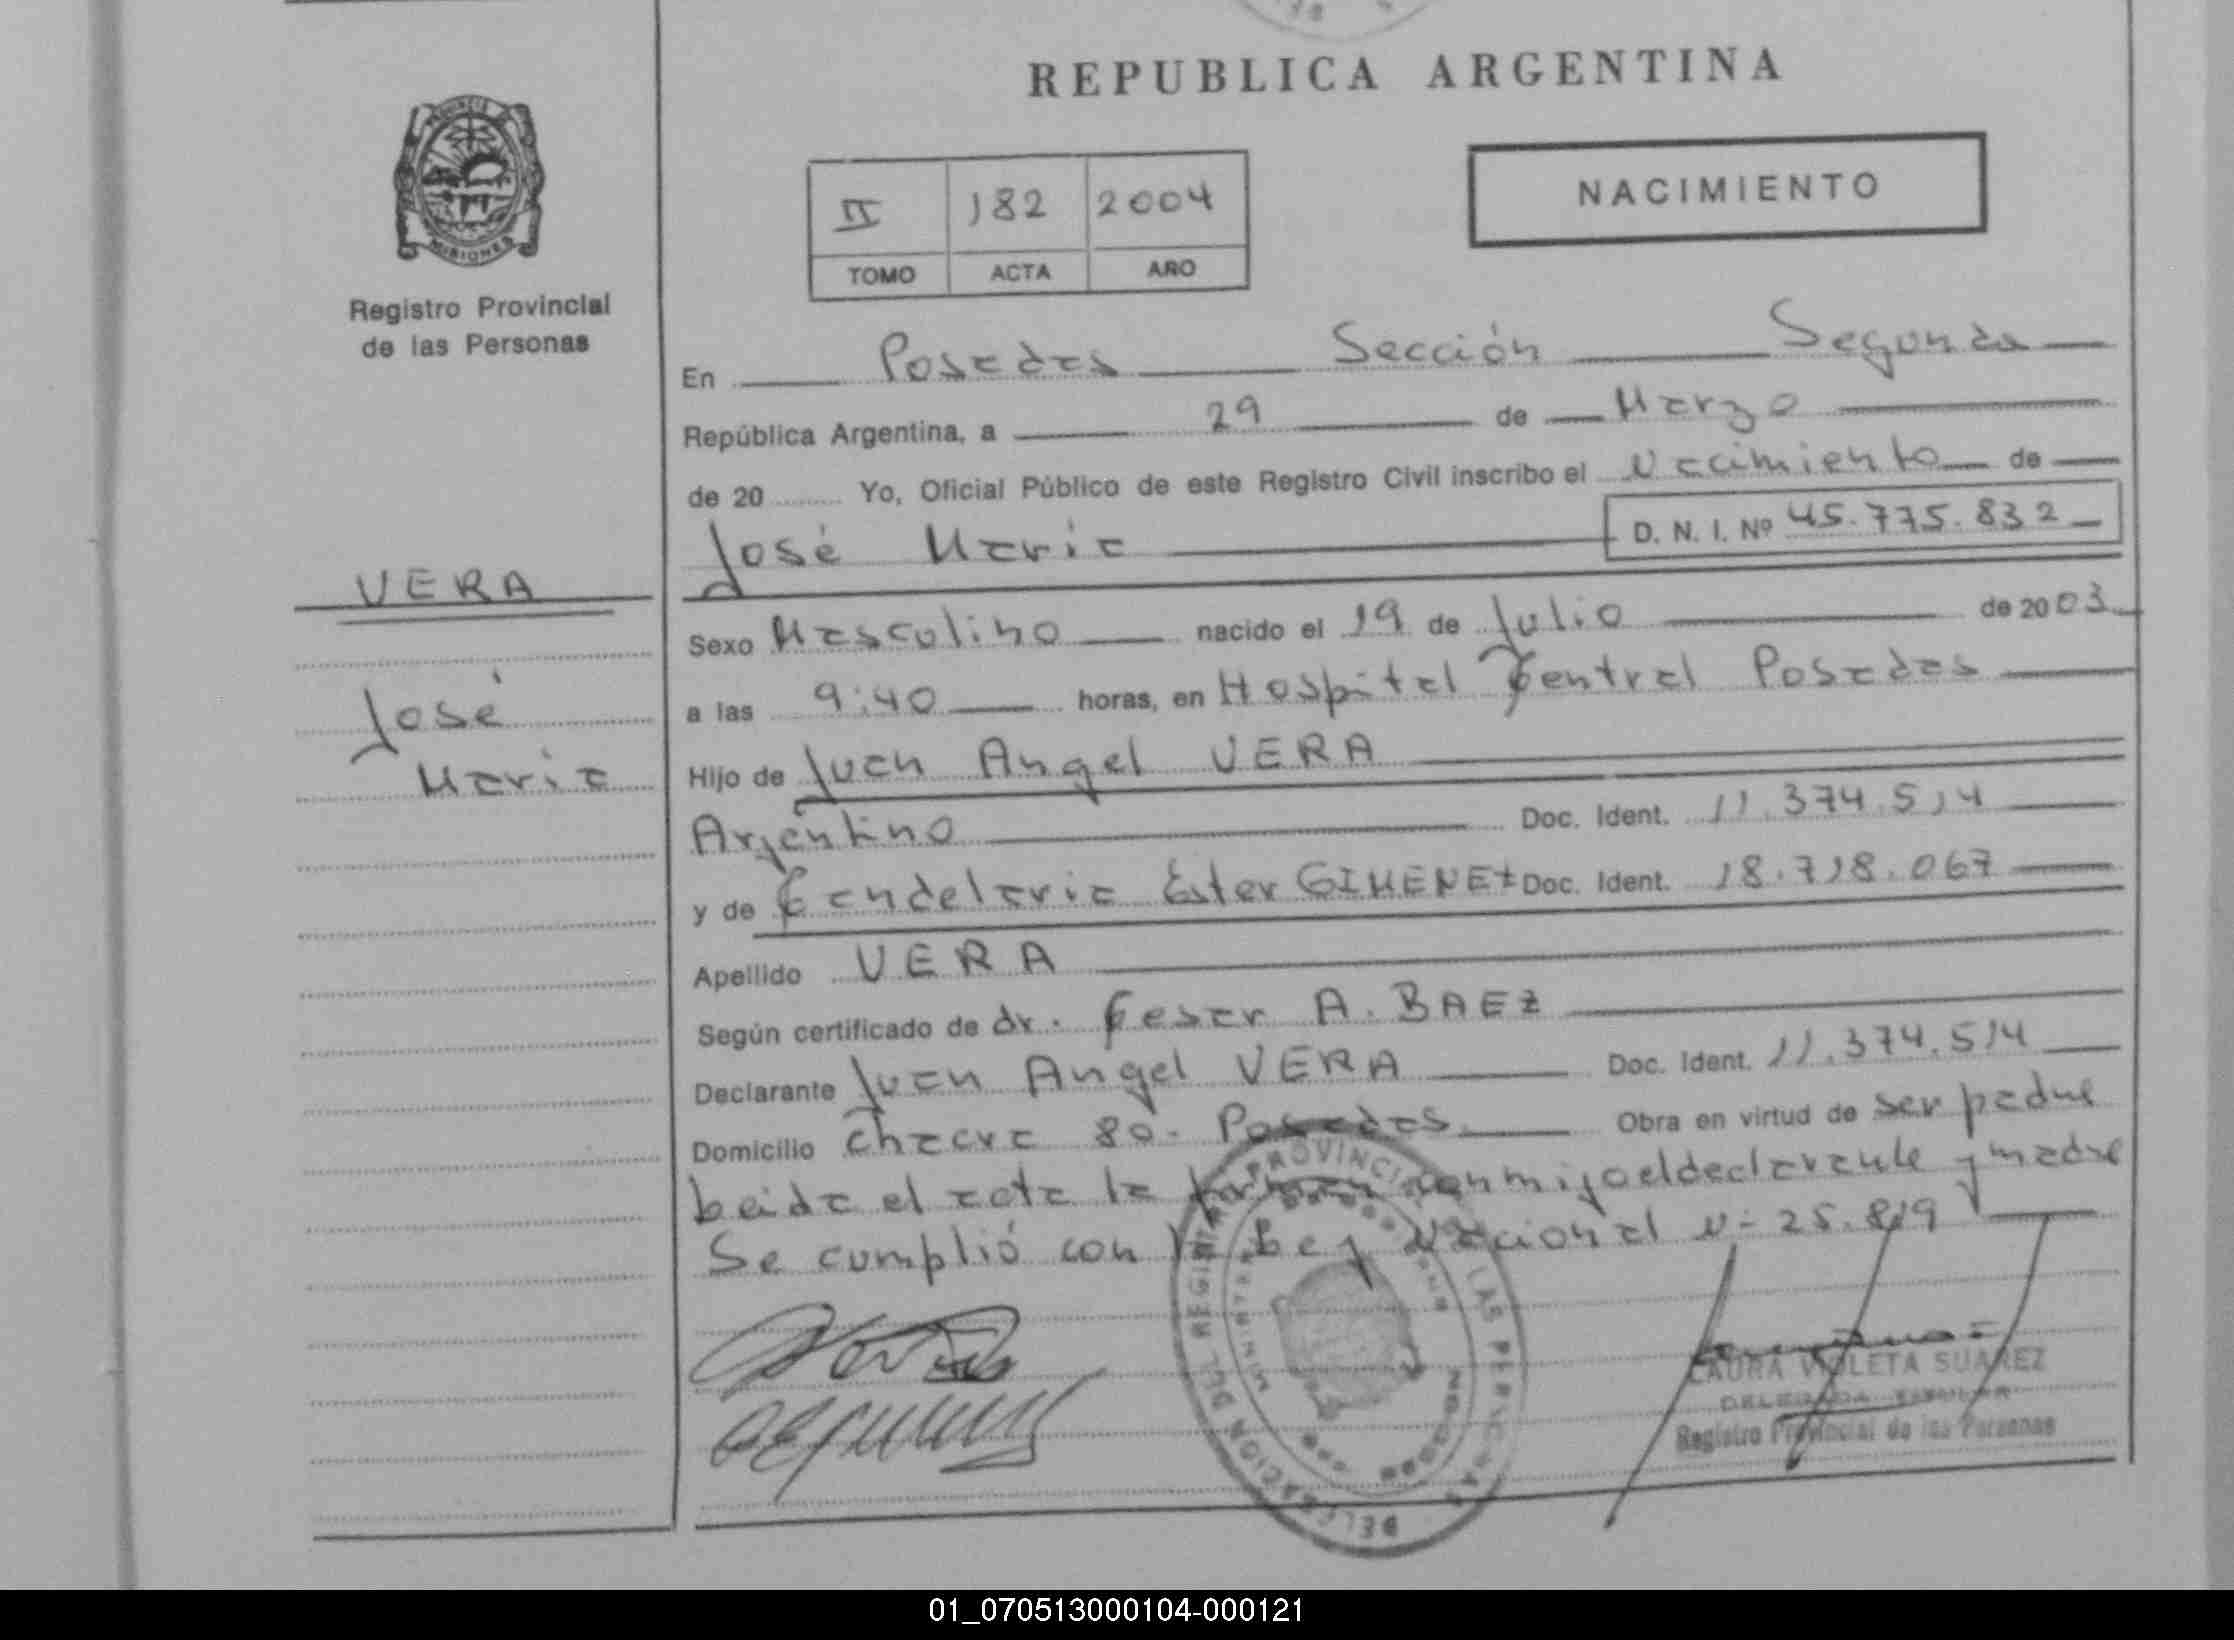 REPUBLICA ARGENTINA
PROVINCIA DE MISIONES
Registro Provincial
de las Personas
II 182 2004
TOMO ACTA AÑO
NACIMIENTO
En Posadas Sección Segunda
República Argentina, a 29 de Marzo
de 20 ........ Yo, Oficial Público de este Registro Civil inscribo el Nacimiento de
José Maria D. N. I. Nº 45.775.832
VERA
José
Maria
Sexo Masculino nacido el 19 de Julio de 2003
a las 9:40 horas, en Hospital Central Posadas
Hijo de Juan Angel VERA
Argentino Doc. Ident. 11.374.514
y de Candelaria Ester GIMENEZ Doc. Ident. 18.718.067
Apellido VERA
Según certificado de dr. Cesar A. BAEZ
Declarante Juan Angel VERA Doc. Ident. 11.374.514
Domicilio Chacra 80. Posadas Obra en virtud de ser padre
Leida el acta la firman conmigo el declarante y madre
Se cumplió con la Ley Nacional N- 25.819
DELEGACION DEL REGISTRO PROVINCIAL DE LAS PERSONAS
LAURA VIOLETA SUAREZ
DELEGADA TITULAR
Registro Provincial de las Personas
01_070513000104-000121